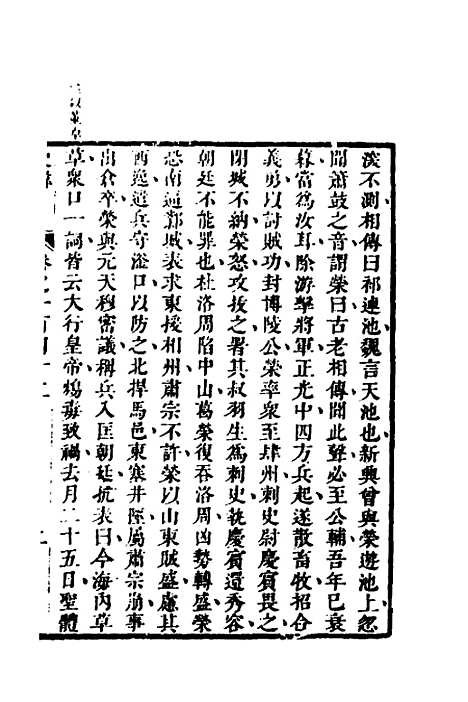 淡不測相傳曰祁連池魏言天池也新興曾與榮遊池上忽
聞蕭鼓之音謂榮曰古老相傳聞此聲必至公輔吾年已衰
暮當為汝耳除游擊將軍正光中四方兵起遂散畜牧招合
義勇以討賊功封博陵公榮率眾至肆州刺史尉慶賓畏之
閉城不納榮怒攻拔之署其叔羽生為刺史執慶賓還秀容
朝廷不能罪也杜洛周陷中山葛榮復吞洛周凶勢轉盛榮
恐南逼鄴城表求東援相州肅宗不許榮以山東賊盛慮其
西逸遣兵守滏口以防之北捍馬邑東塞井陘屬肅宗崩事
出倉卒榮與元天穆密議稱兵入匡朝廷抗表曰今海內草
草眾口一詞皆云大行皇帝鴆毒致禍去月二十五日聖體